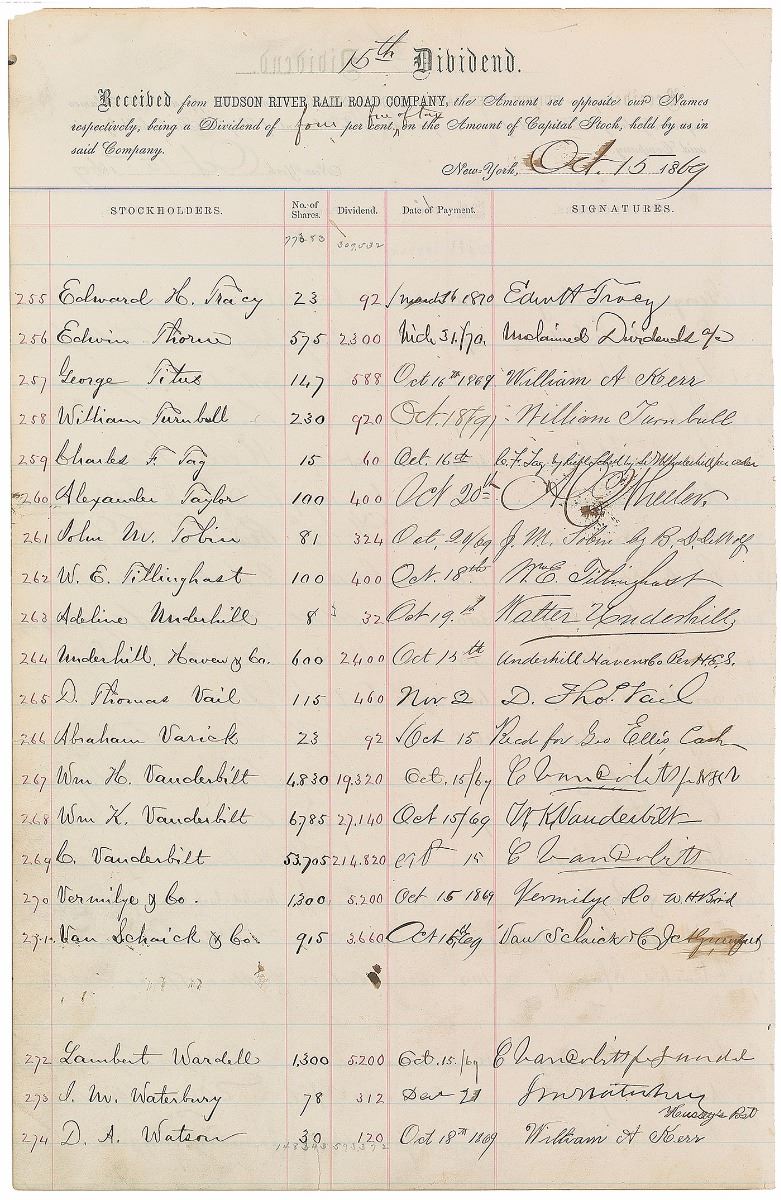 15th Dividend.
Received from HUDSON RIVER RAIL ROAD COMPANY, the Amount set opposite our Names
free of tax
respectively, being a Dividend of four per cent, on the Amount of Capital Stock, held by us in
said Company.
New-York, Oct. 15 1869
STOCKHOLDERS. No. of Shares. Dividend. Date of Payment. SIGNATURES.
77383 309,532
255 Edward H. Tracy 23 92 March 16 1870 Edwd H Tracy
256 Edwin Thorne 575 2300 Mch 31/70. Unclaimed Dividends a/c
257 George Titus 147 588 Oct 16th 1869 William A Kerr
258 William Turnbull 230 920 Oct. 18/69 William Turnbull
259 Charles F. Tag 15 60 Oct. 16th C. F. Tag by
260 Alexander Taylor 100 400 Oct 20th A Wheeler
261 John M. Tobin 81 324 Oct, 29/69 J. M. Tobin by R. D. DeWolf
262 W. E. Tillinghast 100 400 Oct. 18th Wm E. Tillinghast
263 Adeline Underhill 8 32 Oct 19. Walter Underhill
264 Underhill, Haven & Co. 600 2400 Oct 15th Underhill Haven & Co Per H.E.S.
265 D. Thomas Vail 115 460 Nov 2 D. Thos. Vail
266 Abraham Varick 23 92 Oct 15 Recd for Geo Ellis Cash
267 Wm H. Vanderbilt 4,830 19,320 Oct. 15/69 C Vanderbilt for WHV
268 Wm K. Vanderbilt 6785 27,140 Oct 15/69 W K Vanderbilt
269 C. Vanderbilt 53,705 214,820 oct 15 C Vanderbilt
270 Vermilye & Co. 1,300 5,200 Oct 15 1869 Vermilye & Co W H Bird
271 Van Schaick & Co. 915 3,660 Oct 15/69 Van Schaick & Co
272 Lambert Wardell 1,300 5,200 Oct. 15./69 C Vanderbilt for L Wardell
273 J. M. Waterbury 78 312 Dec 21 J M Waterbury
274 D. A. Watson 30 120 Oct 18th 1869 William A Kerr